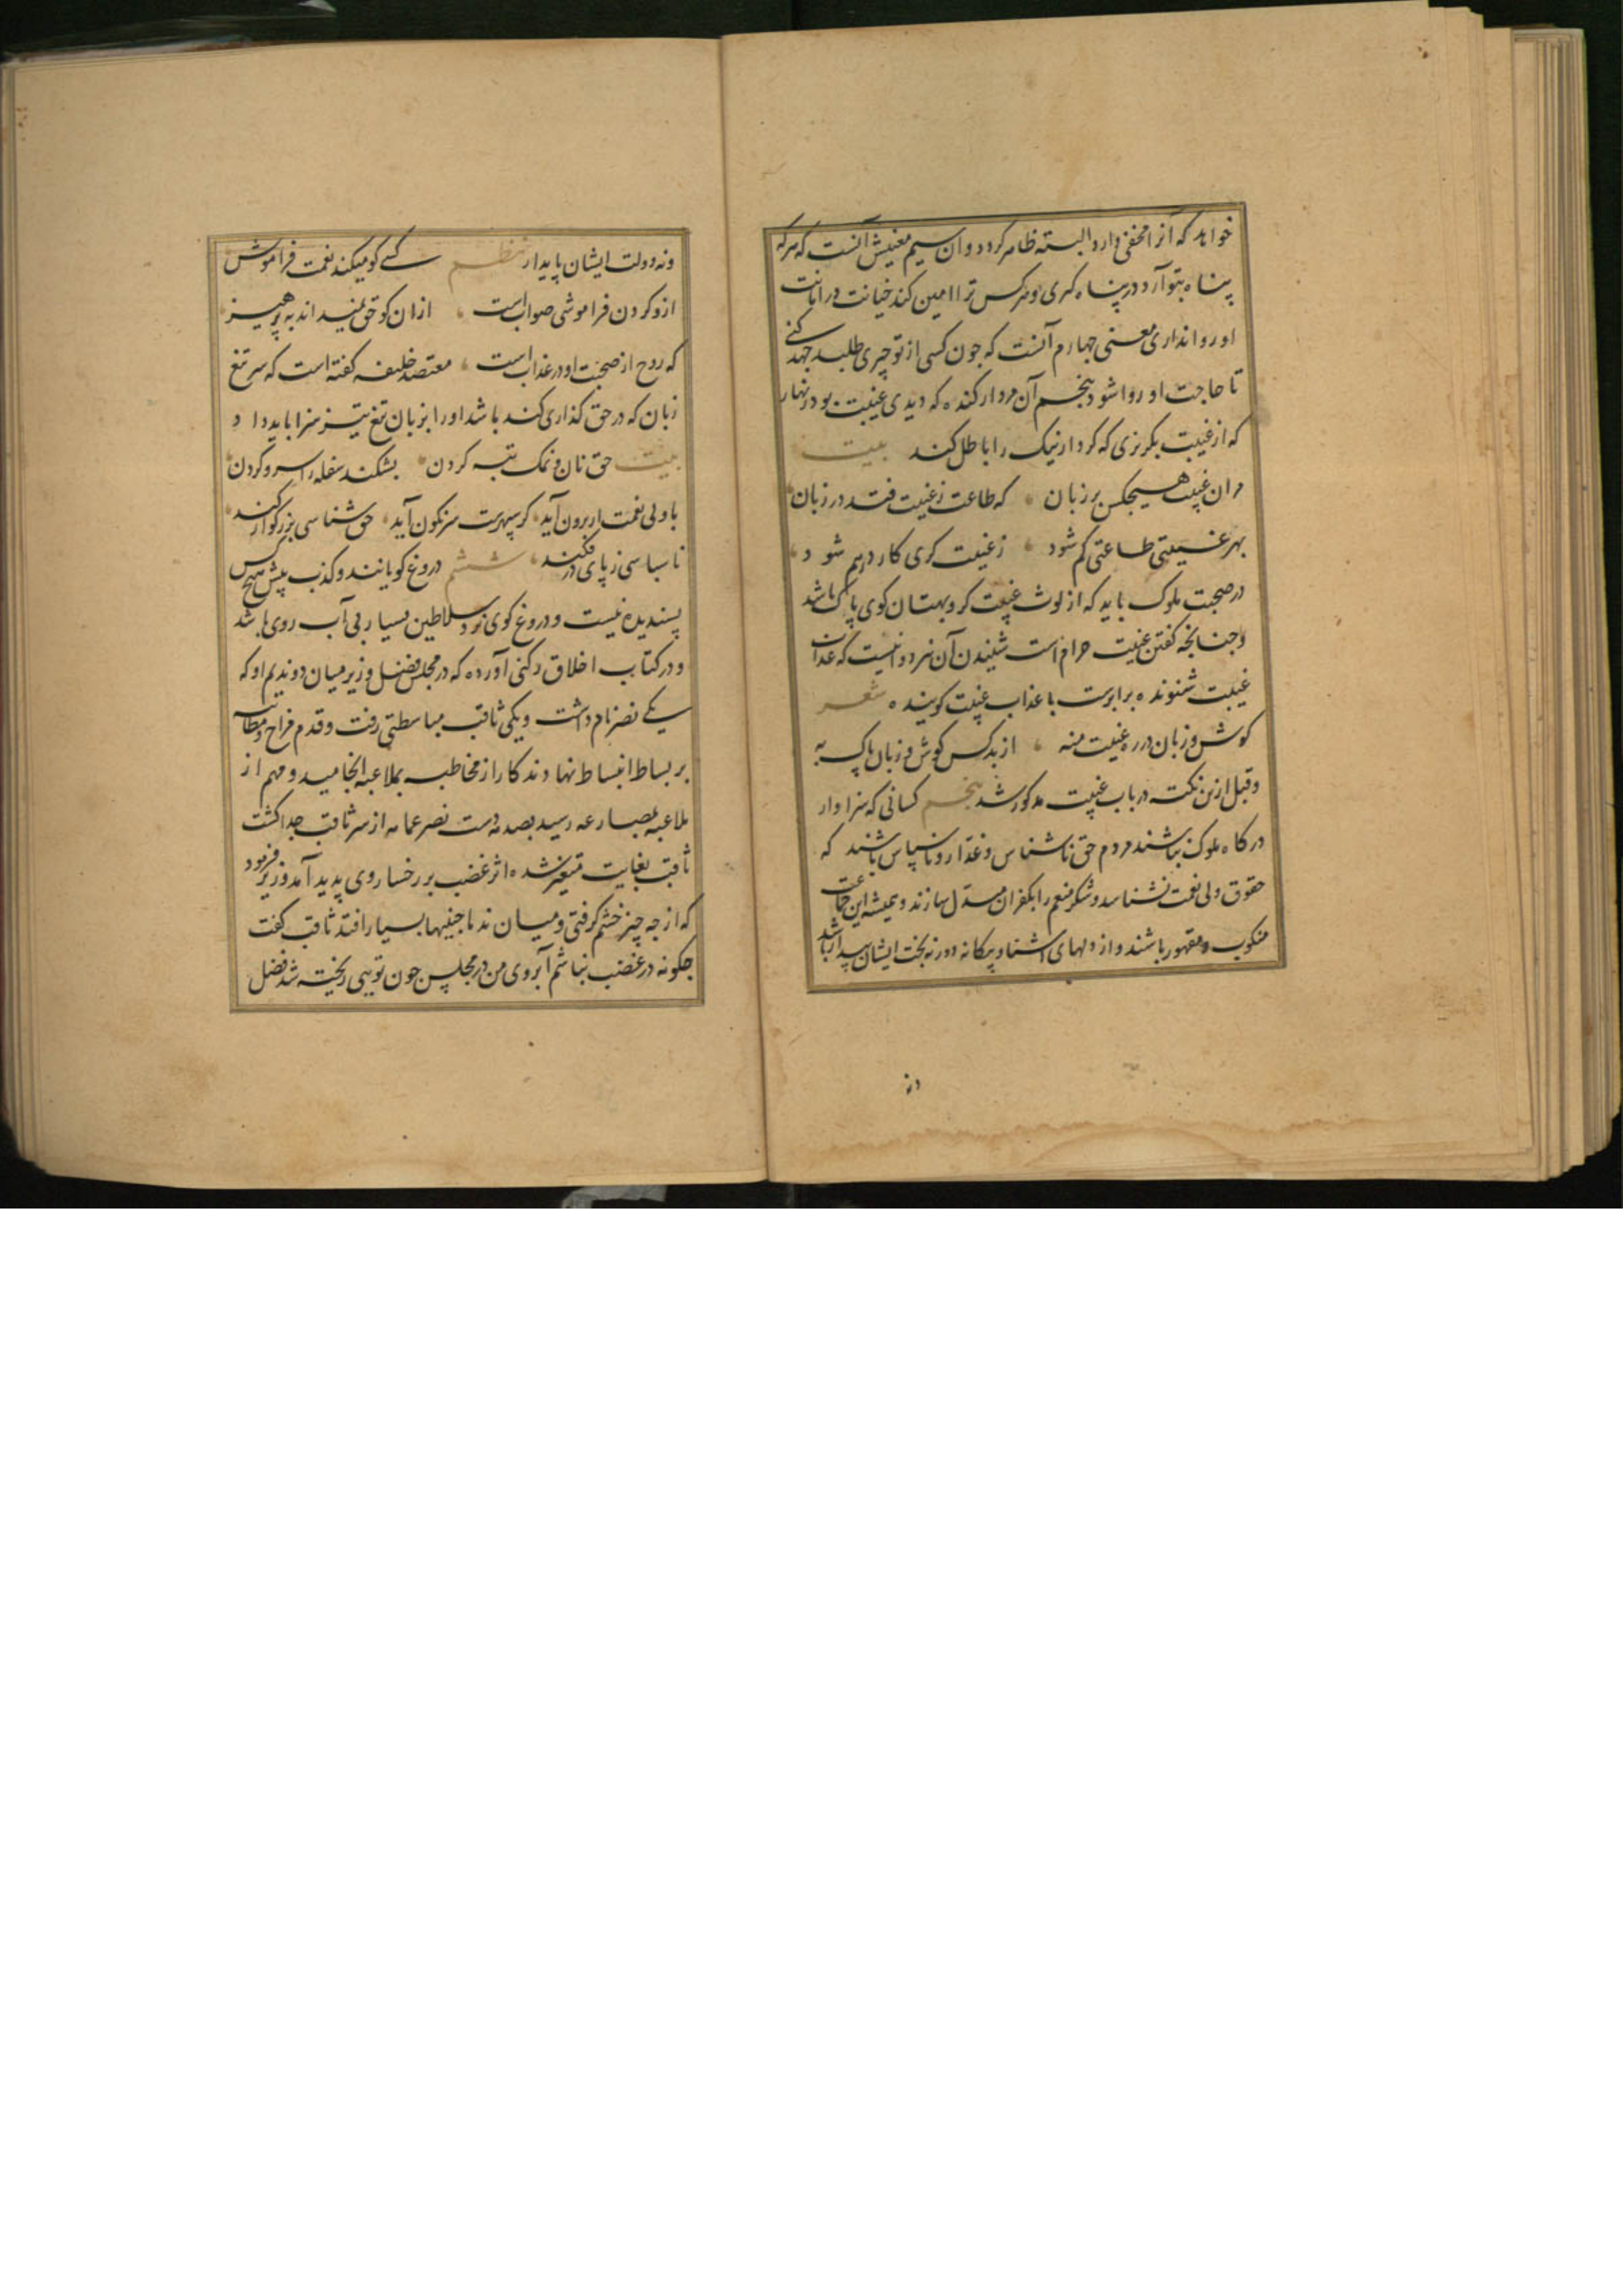 خواهد که آنرا مخفی دارد البته ظاهر کردد وان سیم معنیش آنست که هرکه
پناه بتو آرد در پناه کیری و هرکس ترا امین کند خیانت در امانت
او روا نداری معنی جهارم آنست که جون کسی از تو چیزی طلبد جهد کنی
تا حاجت او روا شود پنجم آن مردار کنده که دیدی غیبت بود زنهار
که از غیبت بکریزی که کردار نیک را باطل کند بیت
مران غیبت هیچکس بر زبان که طاعت ز غیبت فتد در زیان
بهر غیبتی طاعتی کم شود ز غیبت کری کار درهم شود
در صحبت ملوک باید که از لوث غیبت کر و بهتان کوی پاک باشد
و جنانجه کفتن غیبت حرام است شنیدن آن نیز روا نیست که عذاب
غیبت شنونده برابرست با عذاب غیبت کوینده شعر
کوش و زبان در ره غیبت منه از بد کس کوش و زبان پاک به
و قبل ازین نکته در باب غیبت مذکور شد پنجم کسانی که سزاوار
درکاه ملوک نباشند مردم حق ناشناس و غدار و ناسپاس باشند که
حقوق ولی نعمت نشناسد و شکر منعم را بکفران مبدل سازند و همیشه این جماعت
منکوب و مقهور باشند و از دلهای آشنا و بیکانه دور نه بخت ایشان بیدار باشد
ونه
ونه دولت ایشان پایدار نظم کسی کو میکند نعمت فراموش
ازو کردن فراموشی صوابست ازان کو حق نمیداند به پرهیز
که روح از صحبت او در عذابست معتصد خلیفه کفته است که سر تیغ
زبان که در حق کذاری کند باشد او را بزبان تیغ تیز سزا باید داد
بیت حق نان و نمک تبه کردن بشکند سفله را سر و کردن
با ولی نعمت ار برون آید کر سپهرست سرنکون آید حق شناسی بزرکوار کند
ناسپاسی ز پای در فکند ششم دروغ کویانند و کذب پیش هیچ کس
پسندیده نیست و دروغ کوی نزد سلاطین بسیار بی آب روی باشد
و در کتاب اخلاق رکنی آورده که در مجلس فضل وزیر میان دو ندیم او که
یکی نصر نام داشت و یکی ثاقب مباسطتی رفت و قدم مزاح و مطایبه
بر بساط انبساط نهادند کار از مخاطبه بملاعبه انجامید و مهم از
ملاعبه بمصارعه رسید بصدمه دست نصر عمامه از سر ثاقب جدا کشت
ثاقب بغایت متغیر شده اثر غضب بر رخسار وی پدید آمد وزیر فرمود
که از جه چیز خشم کرفتی و میان ندما جنینها بسیار افتد ثاقب کفت
جکونه در غضب نباشم آبروی من در مجلس جون تویی ریخته شد فضل